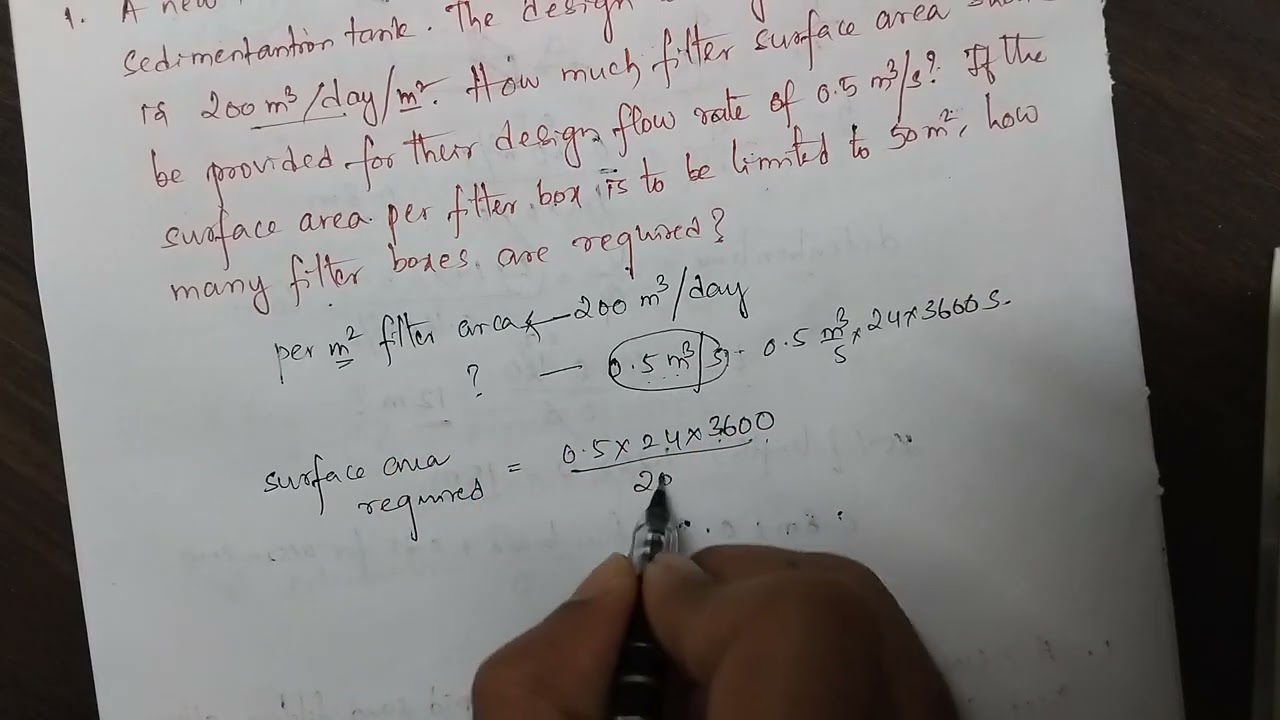 1. A new
sedimentantion tank. The design
is 200 m³/day/m². How much filter surface area
be provided for their design flow rate of 0.5 m³/s? If the
surface area per filter box is to be limited to 50 m², how
many filter boxes are required?
per m² filter area ← 200 m³/day
? — 0.5 m³/s - 0.5 m³/s × 24 × 3600 s.
surface area required = 0.5 × 24 × 3600 / 20